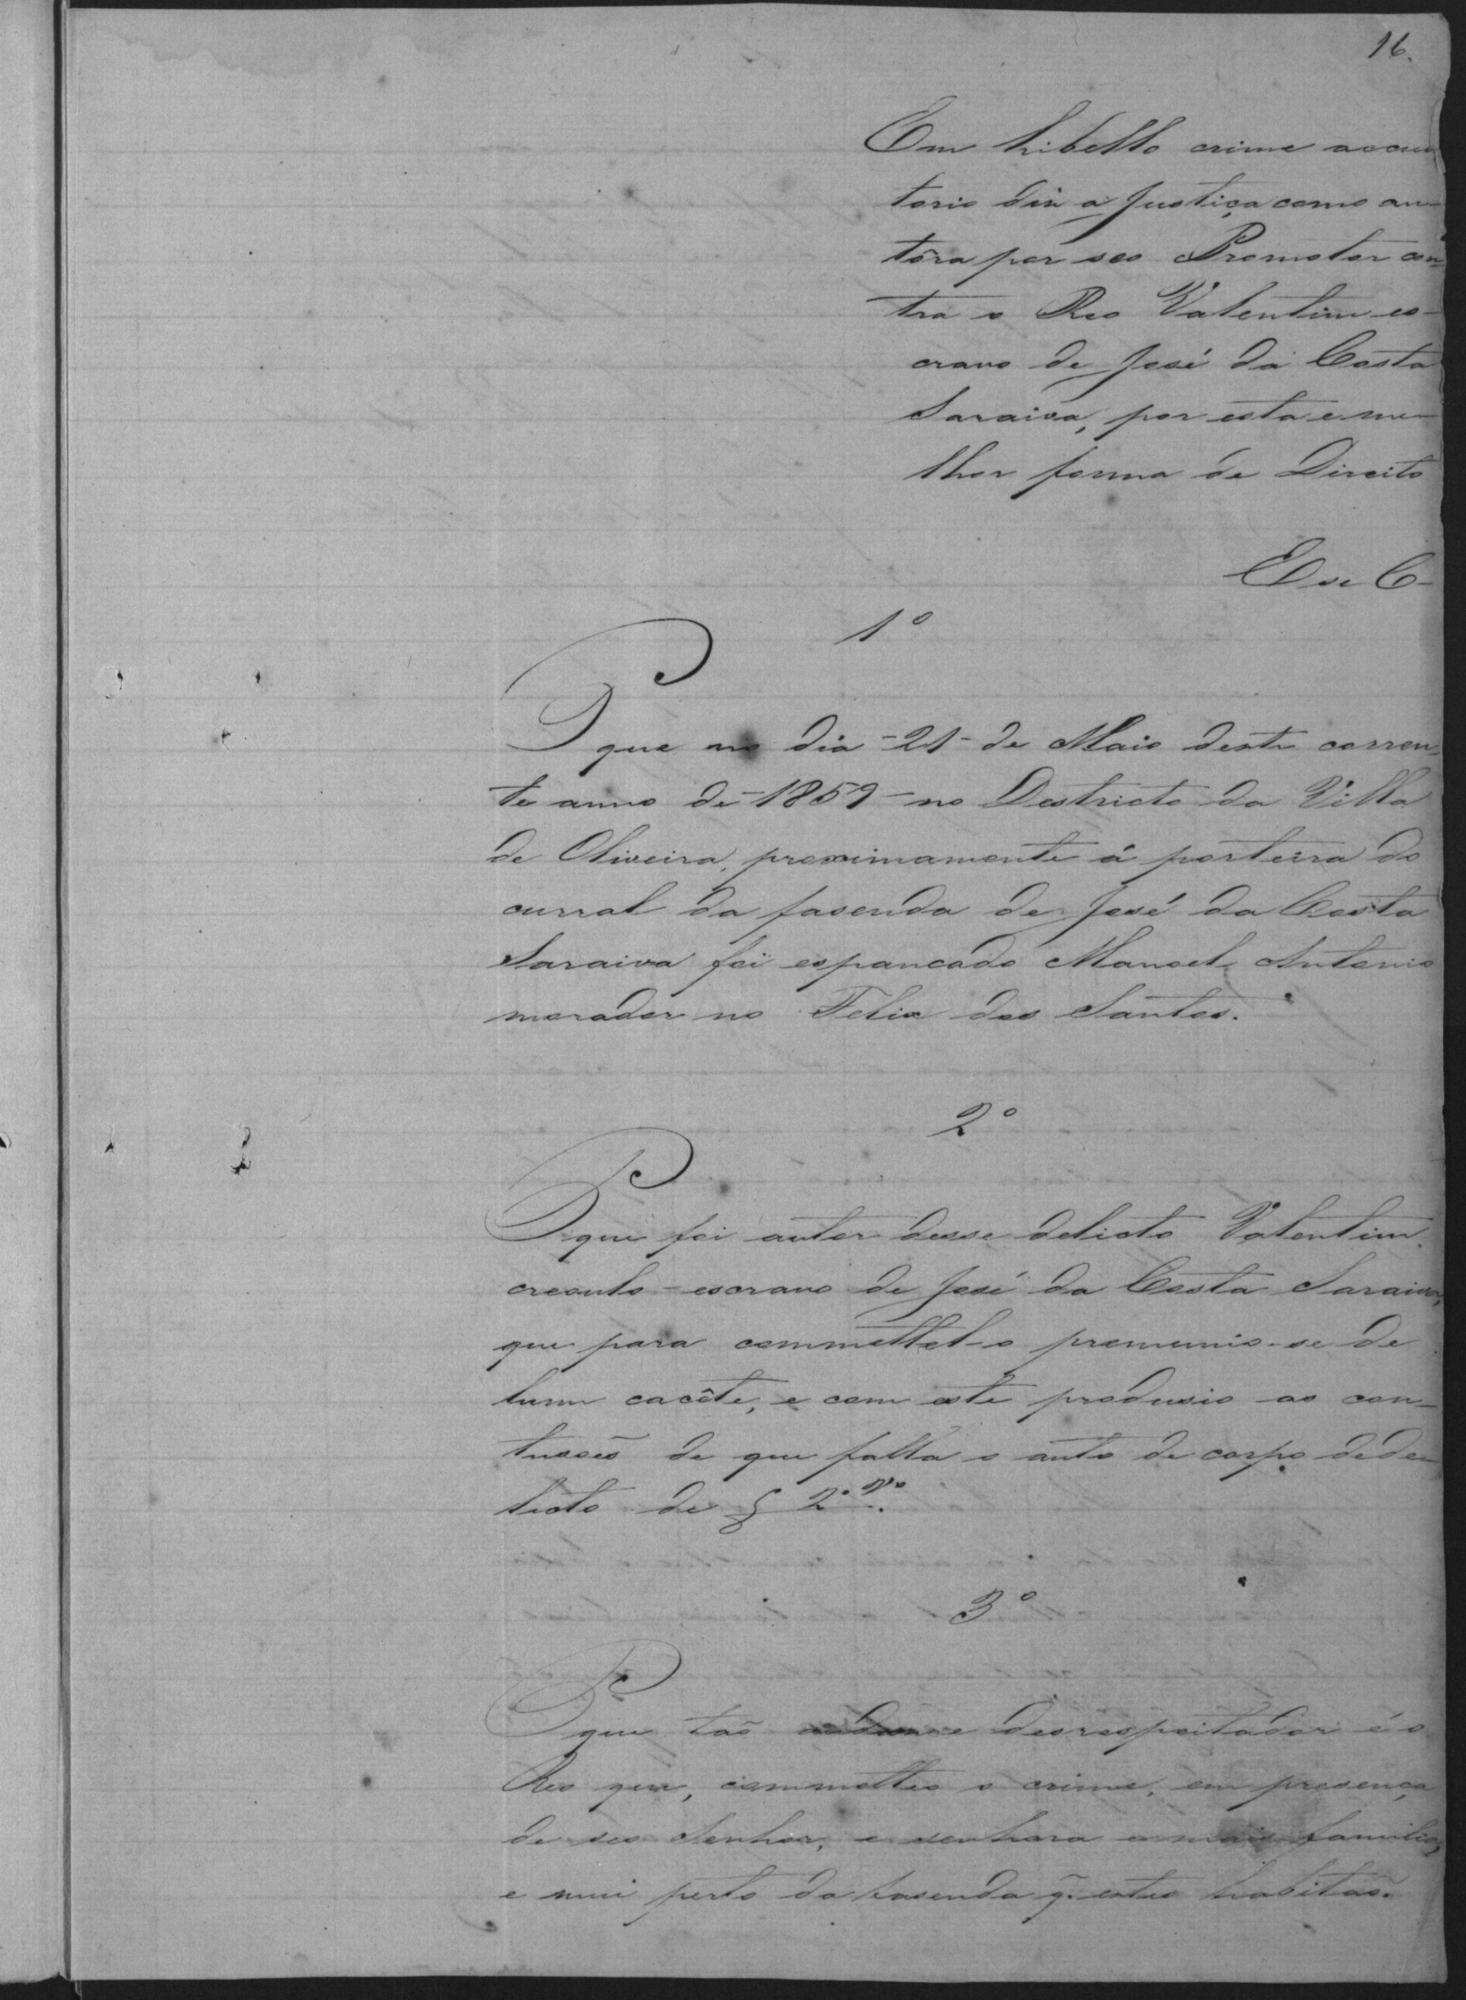 16.
Em libello crime accusa
torio diz a Justiça como au-
tôra por seo Promotor con-
tra o Reo Valentim es-
cravo de José da Costa
Saraiva, por esta e me-
lhor forma de Direito
E se C-
1º
P que no dia -21- de Maio deste corren-
te anno de -1859- no Destricto da Villa
de Oliveira, proximamente á porteira do
curral da fasenda de José da Costa
Saraiva foi espancado Manoel Antonio
morador no Felix dos Santos.
2º
P que foi autor desse delicto Valentim
creoulo - escravo de José da Costa Saraiva,
que para commettel-o premunio-se de
hum cacête, e com este produsio as con-
tusoẽs de que falla o auto de corpo de de-
licto de f 2. vº.
3º
P que taõ desrespeitador é o
Reo que, commetteo o crime, em presença
de seo Senhor, e senhora e mais familia,
e mui perto da fasenda q̃. estes habitaõ.